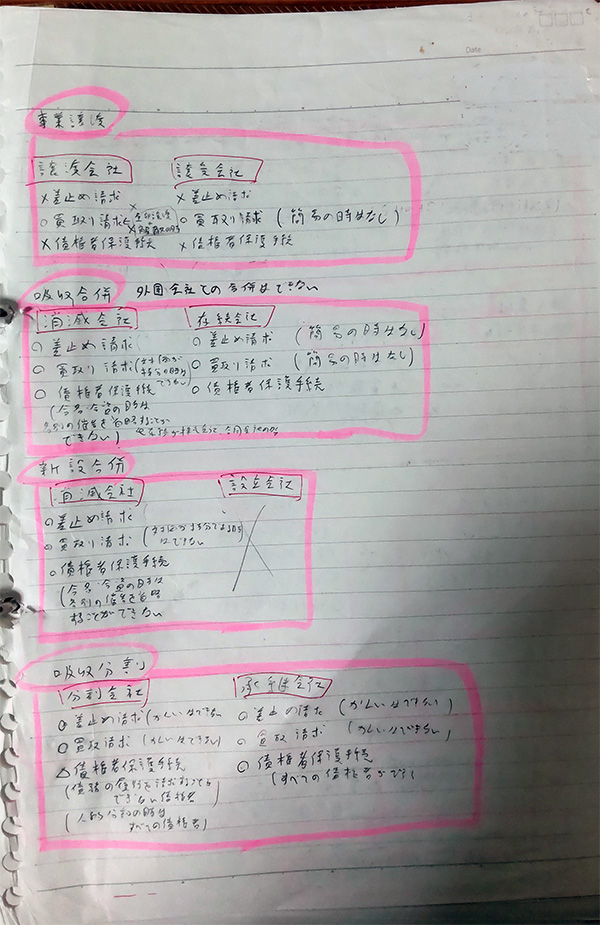 Date
事業譲渡
譲渡会社 譲受会社
×差止め請求 ×差止め請求
○買取り請求 ○買取り請求 (簡易の時はなし)
×債権者保護手続 ×債権者保護手続
吸収合併 外国会社との合併はできない
消滅会社 存続会社
○差止め請求 ○差止め請求 (簡易の時はなし)
○買取り請求 (対価が持分の時はできない) ○買取り請求 (簡易の時はなし)
○債権者保護手続 ○債権者保護手続
(合名合資の時は
各別の催告を省略することが
できない)
新設合併
消滅会社 設立会社
○差止め請求
○買取り請求 (対価が持分である時は
はできない
○債権者保護手続
(合名合資の時は
各別の催告を省略
することができない
吸収分割
分割会社 承継会社
○差止め請求 (かんいはできない ○差止め請求 (かんいはできない)
○買取請求 (かんいはできない) ○買取請求 (かんいはできない)
△債権者保護手続 ○債権者保護手続
(債務の履行を請求することが (すべての債権者が
できない債権者)
(人的分割の時は
すべての債権者)